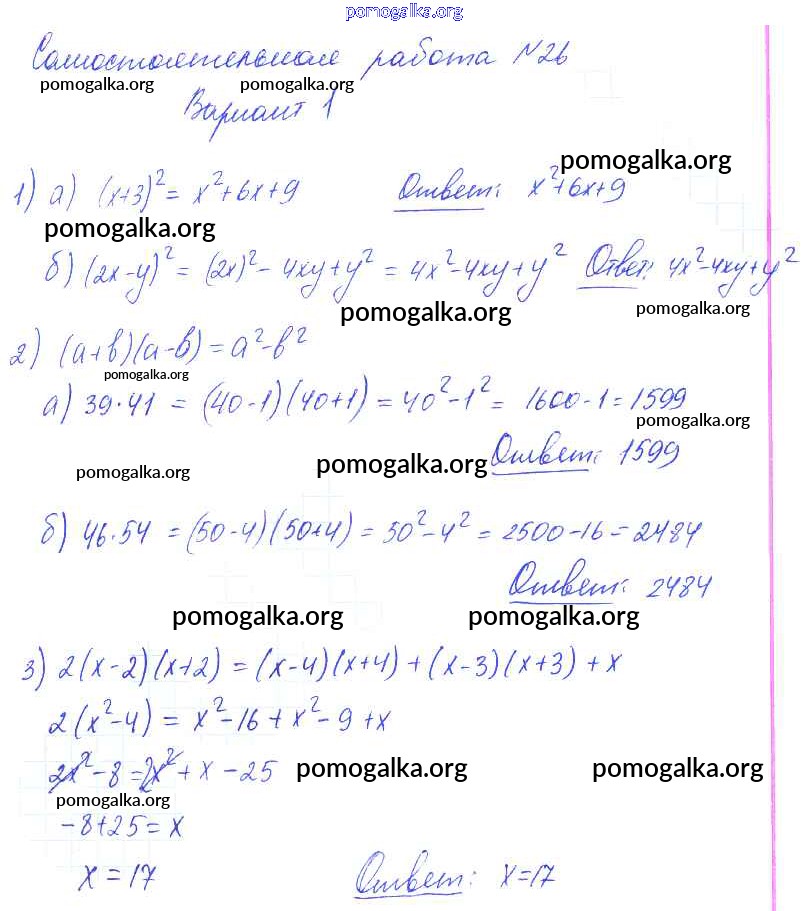 pomogalka.org
Самостоятельная работа №26
pomogalka.org pomogalka.org pomogalka.org
Вариант 1
pomogalka.org
1) а) (x+3)² = x²+6x+9 Ответ: x²+6x+9
pomogalka.org
б) (2x-y)² = (2x)² - 4xy+y² = 4x²-4xy+y² Ответ: 4x²-4xy+y²
pomogalka.org pomogalka.org
2) (a+b)(a-b)=a²-b²
pomogalka.org
а) 39·41 = (40-1)(40+1) = 40²-1² = 1600-1=1599
pomogalka.org
Ответ: 1599
pomogalka.org pomogalka.org
б) 46·54 = (50-4)(50+4) = 50²-4² = 2500-16=2484
Ответ: 2484
pomogalka.org pomogalka.org
3) 2(x-2)(x+2) = (x-4)(x+4)+(x-3)(x+3)+x
2(x²-4) = x²-16+x²-9+x
2x²-8=2x²+x-25 pomogalka.org pomogalka.org
pomogalka.org
-8+25=x
x=17 Ответ: x=17